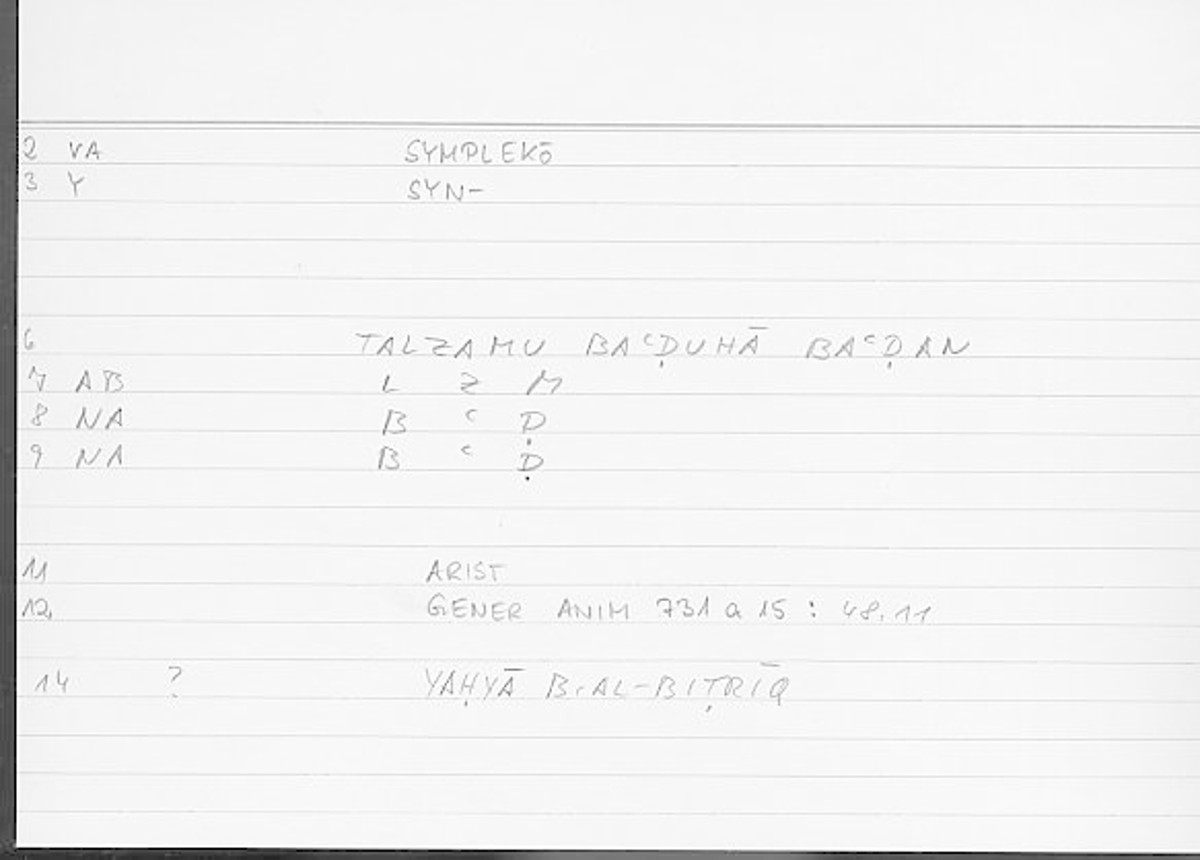 2 VA SYMPLEKŌ
3 Y SYN-
6 TALZAMU BAʿḌUHĀ BAʿḌAN
7 AB L Z M
8 NA B ʿ Ḍ
9 NA B ʿ Ḍ
11 ARIST
12 GENER ANIM 731 a 15 : 48.11
14 ? YAḤYĀ B. AL-BIṬRĪQ